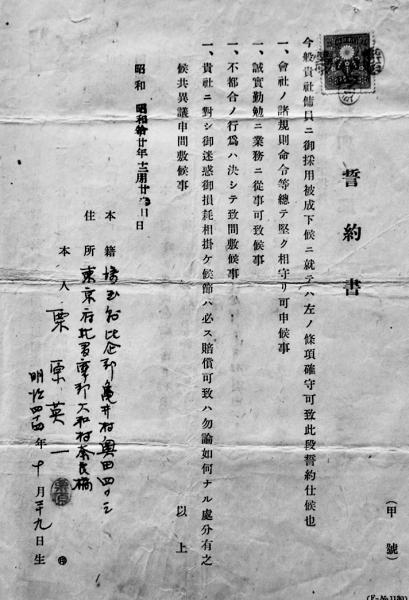 誓約書
(甲號)
今般貴社傭員ニ御採用被成下候ニ就テハ左ノ條項確守可致此段誓約仕候也
一、會社ノ諸規則命令等總テ堅ク相守リ可申候事
一、誠實勤勉ニ業務ニ從事可致候事
一、不都合ノ行爲ハ決シテ致間敷候事
一、貴社ニ對シ御迷惑御損耗相掛ケ候節ハ必ス賠償可致ハ勿論如何ナル處分有之
候共異議申間敷候事
以上
昭和 昭和拾廿年十二月廿 日
本籍 埼玉縣比企郡亀井村奥田四
住所 東京府北多摩郡大和村奈良橋
本人 栗原英一
明治四十四年十月二十九日生